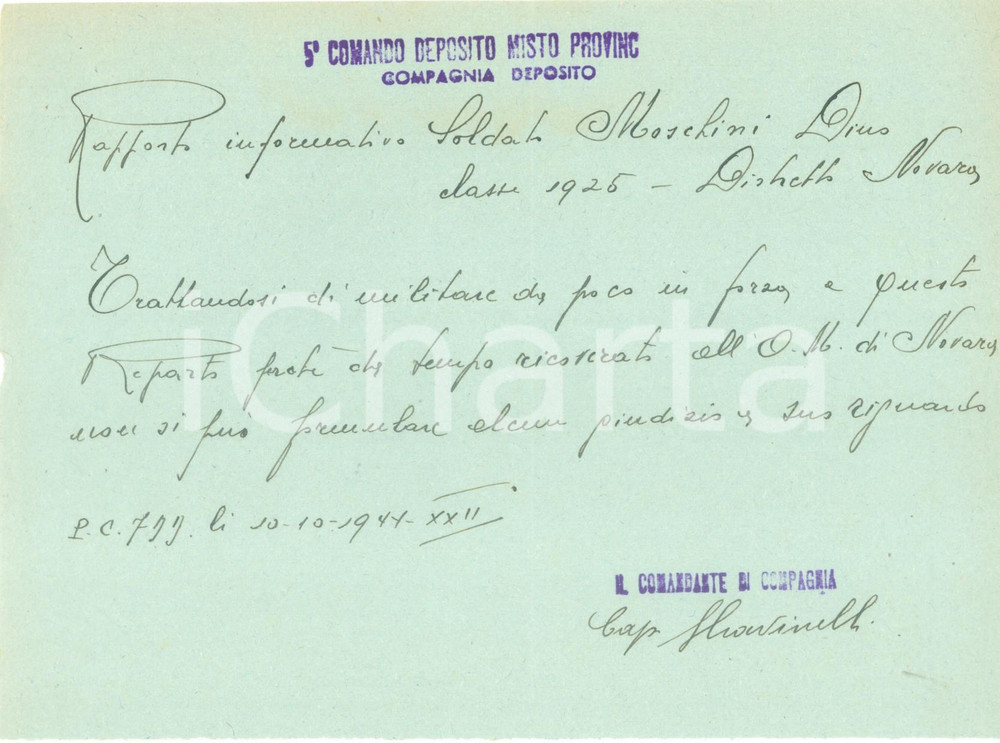 5° COMANDO DEPOSITO MISTO PROVINC
COMPAGNIA DEPOSITO
Rapporto informativo Soldato Moschini Dino
classe 1925 - Distretto Novara
Trattandosi di militare da poco in forza a questo
Reparto perchè da tempo ricoverato all'O.M. di Novara
non si può formulare alcun giudizio a suo riguardo
P.C. li 10-10-1944-XXII
IL COMANDANTE DI COMPAGNIA
Cap.
iCharta